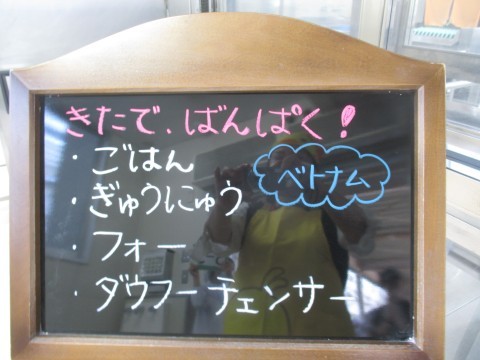 きたで、ばんぱく!
・ごはん
ベトナム
・ぎゅうにゅう
・フォー
・ダウフーチェンサー